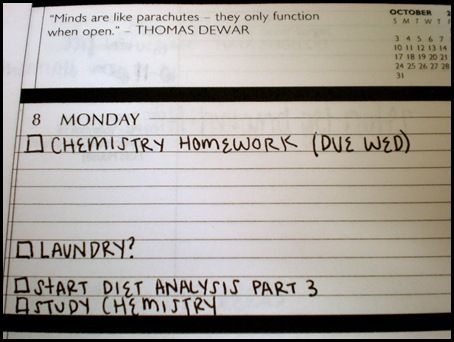 "Minds are like parachutes – they only function
when open." – THOMAS DEWAR
OCTOBER 2
S M T W T F
3 4 5 6 7
10 11 12 13 14
17 18 19 20 21
24 25 26 27 28
31
8 MONDAY
CHEMISTRY HOMEWORK (DUE WED)
LAUNDRY?
START DIET ANALYSIS PART 3
STUDY CHEMISTRY